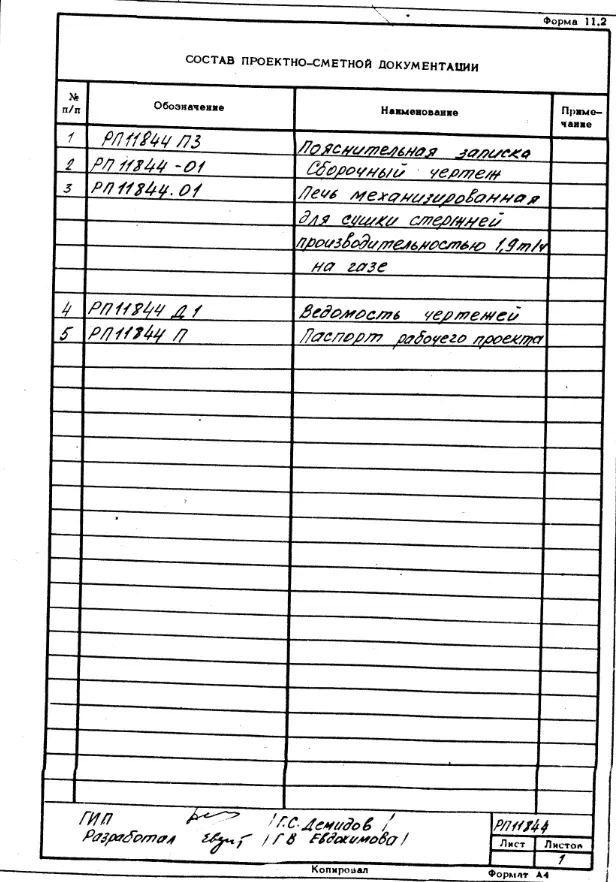 Форма 11.2
СОСТАВ ПРОЕКТНО-СМЕТНОЙ ДОКУМЕНТАЦИИ
№ п/п Обозначение Наименование Приме-
чание
1 РП11844 ПЗ Пояснительная записка
2 РП 11844-01 Сборочный чертеж
3 РП11844.01 Печь механизированная
для сушки стержней
производительностью 1,9т/ч
на газе
4 РП11844 Д1 Ведомость чертежей
5 РП11844 П Паспорт рабочего проекта
ГИП /Г.С.Демидов/
Разработал /Г В Евдокимова/
РП11844
Лист Листов
1
Копировал Формат А4